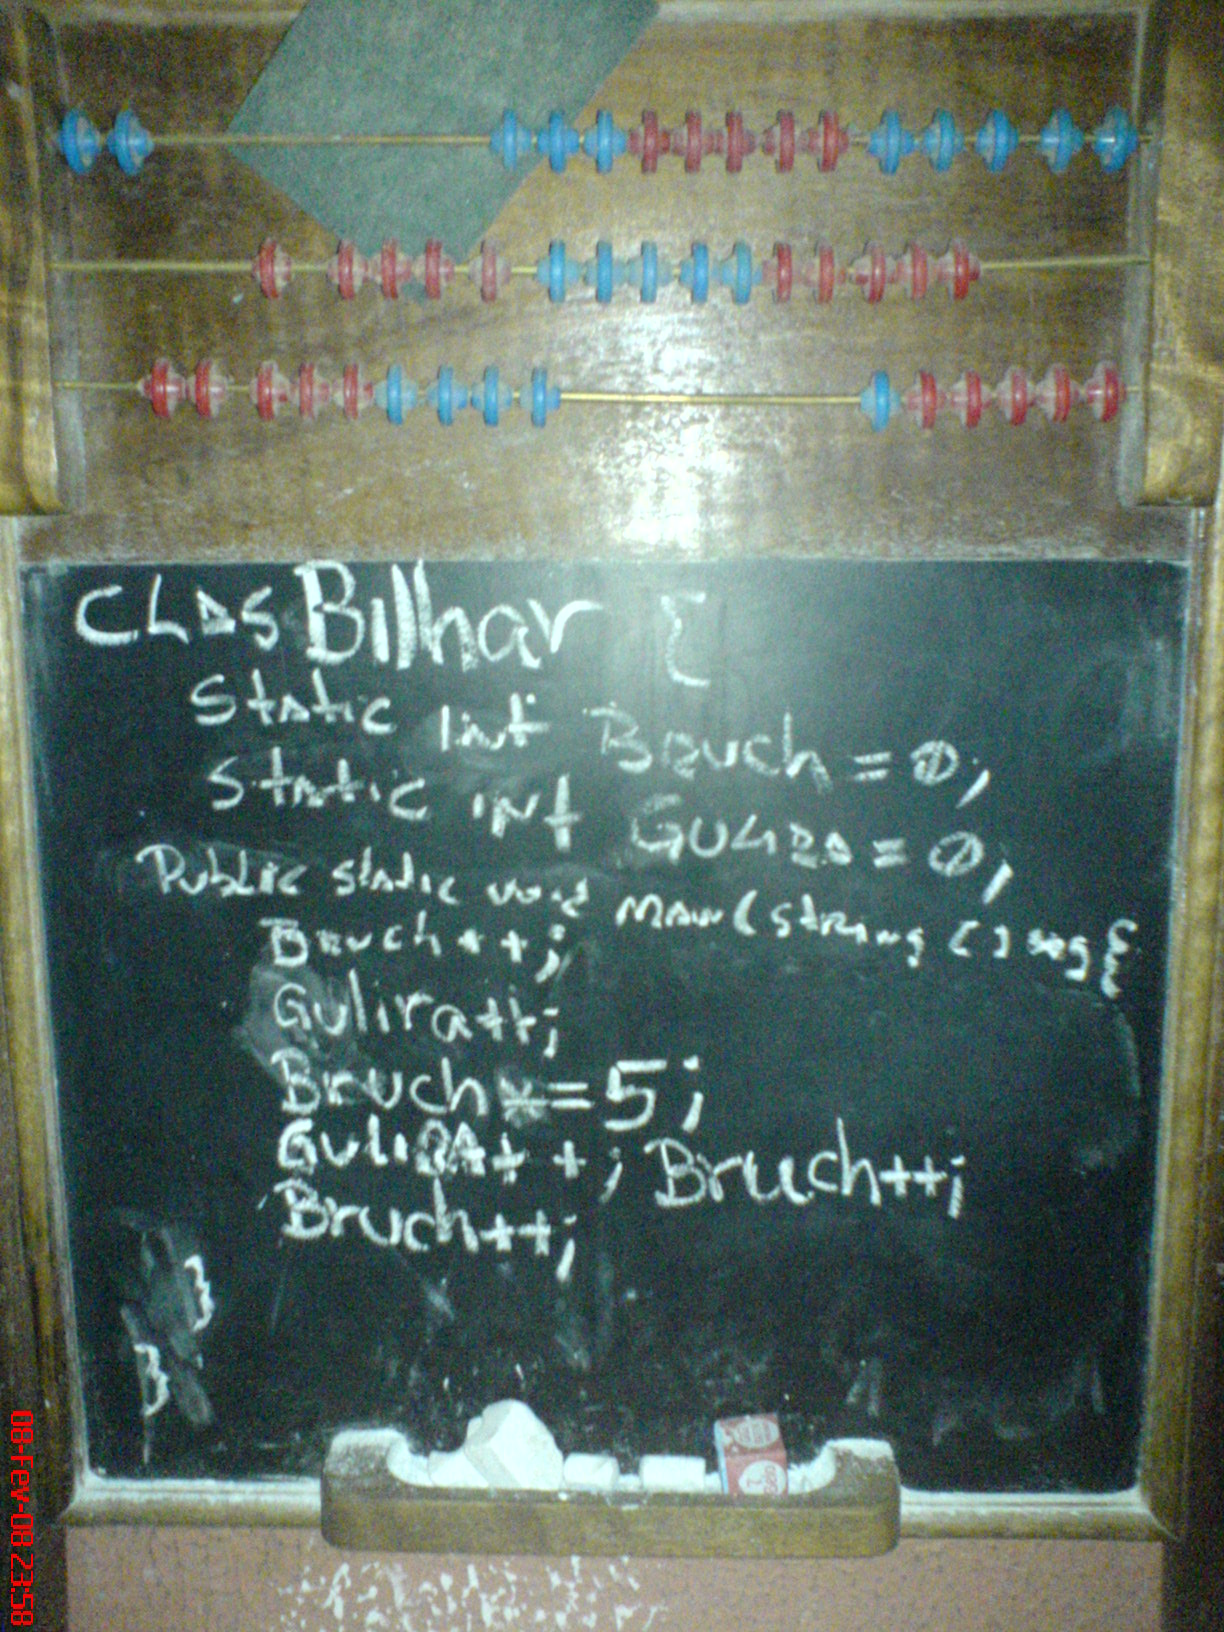 CLAS Bilhar {
Static int Bruch = 0;
Static int GULIRA = 0;
Public static void MAIN (string [] {
Bruch++;
Gulira++;
Bruch*=5;
GuliRA++; Bruch++;
Bruch++;
}
}
08-Fev-08 23:58